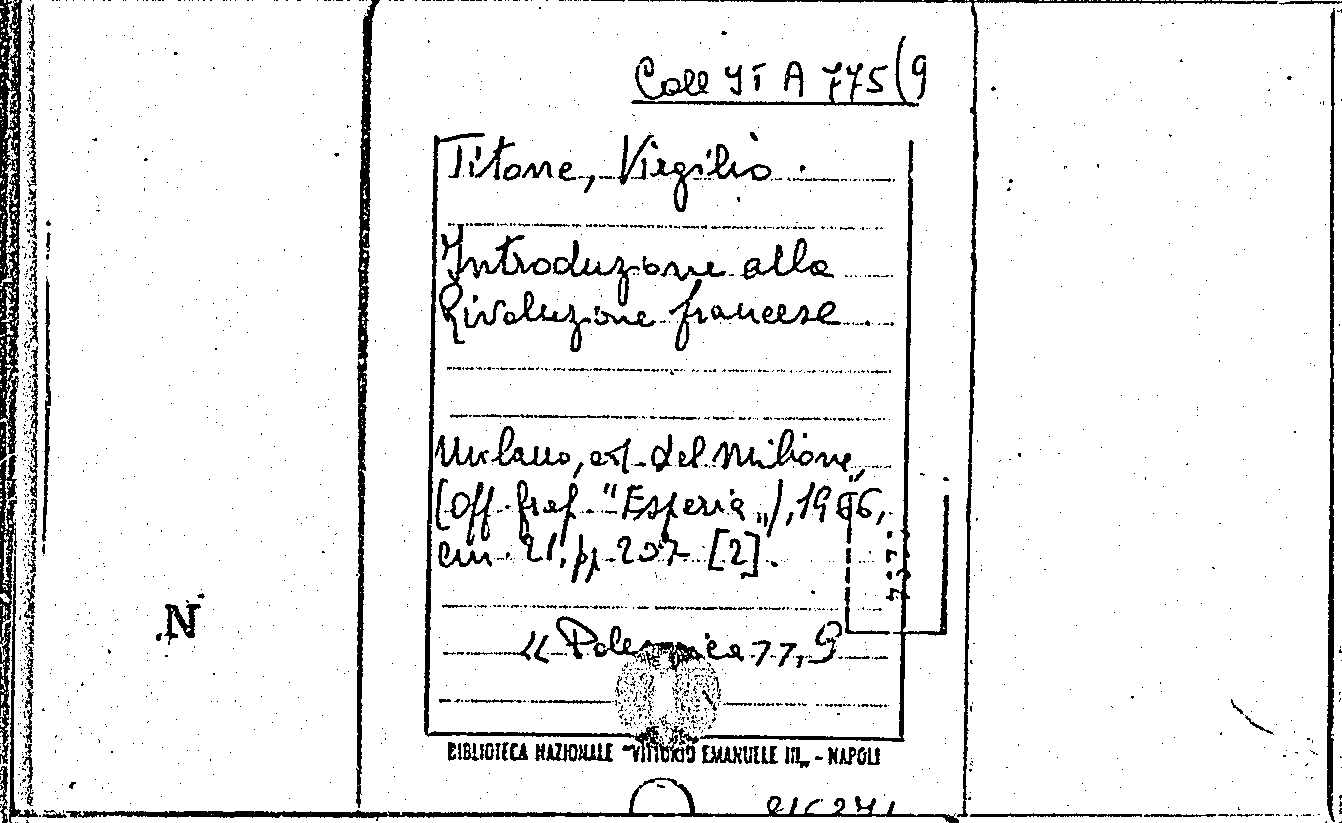 Coll IT A 775(9
Titone, Virgilio.
Introduzione alla
Rivoluzione francese.
Milano, ed. del Milione,
(Off. graf. "Esperia"), 1966,
cm. 21, pp. 207 [2].
"Polemica", 9
BIBLIOTECA NAZIONALE "VITTORIO EMANUELE III" - NAPOLI
N.